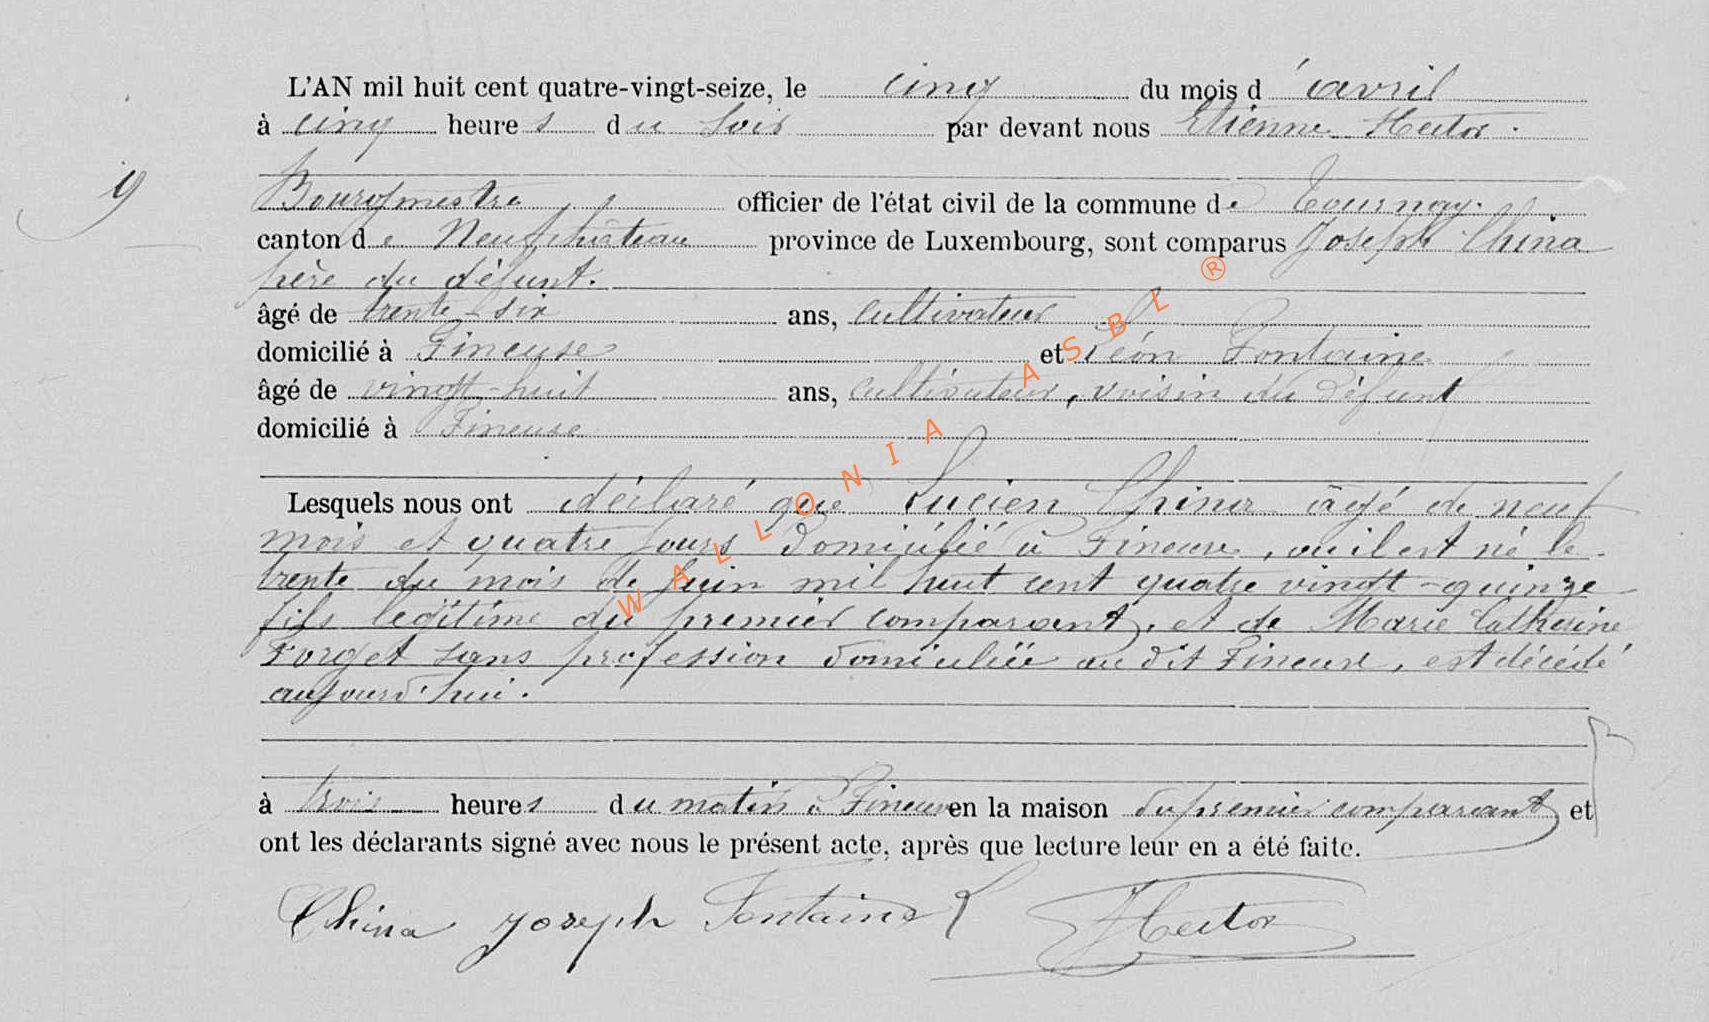 L'AN mil huit cent quatre-vingt-seize, le cinq du mois d'avril
à cinq heures du soir par devant nous Etienne Hector.
9
Bourgmestre officier de l'état civil de la commune de Tournay.
canton de Neufchâteau province de Luxembourg, sont comparus Joseph China
père du défunt.
âgé de trente-six ans, cultivateur
domicilié à Fineuse et Léon Fontaine
âgé de vingt-huit ans, cultivateur, voisin du défunt
domicilié à Fineuse
Lesquels nous ont déclaré que Lucien China âgé de neuf
mois et quatre jours domicilié à Fineuse, où il est né le
trente du mois de Juin mil huit cent quatre vingt-quinze
fils légitime du premier comparant, et de Marie Catherine
Forget sans profession domiciliée au dit Fineuse, est décédé
aujourd'hui.
à trois heures du matin à Fineuse en la maison du premier comparant et
ont les déclarants signé avec nous le présent acte, après que lecture leur en a été faite.
China Joseph Fontaine L Hector
WALLONIA ASBL ®